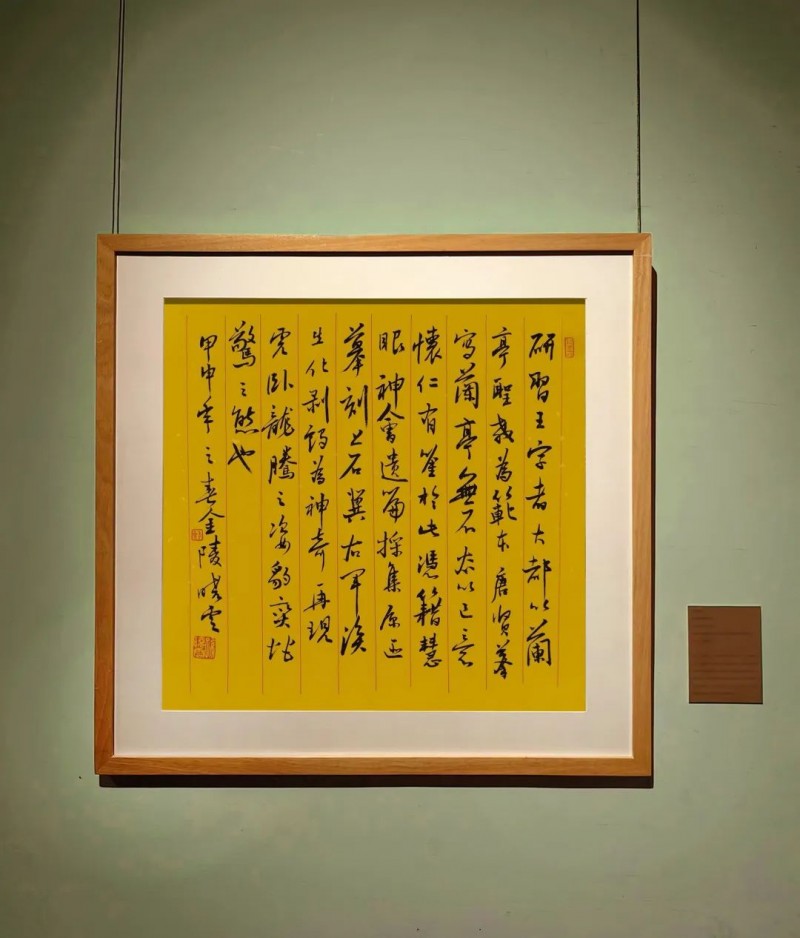 研習王字者大都以蘭
亭聖教為範本唐賢摹
寫蘭亭無不杂以己意
懷仁有鉴於此憑籍慧
眼神會遺篇採集原迹
摹刻上石冀右軍渙
生化剥蝕為神奇再現
虎卧龍騰之姿豹突
驚之態也
甲申年之春金陵曉雲